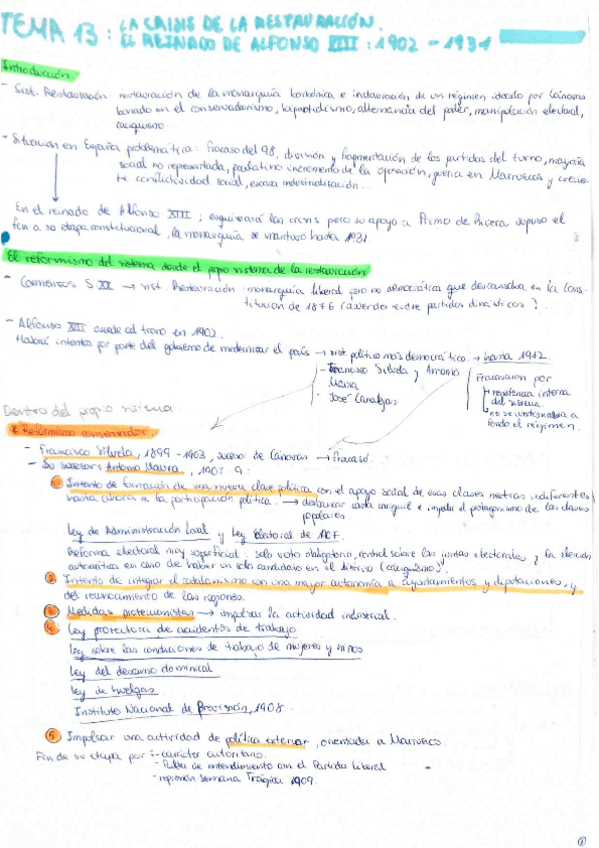 TEMA 13: LA CRISIS DE LA RESTAURACIÓN.
EL REINADO DE ALFONSO XIII: 1902-1931
Introducción
- Sist. Restauración restauración de la monarquía borbónica e instauración de un régimen ideado por Cánovas
basado en el conservadurismo, bipartidismo, alternancia del poder, manipulación electoral,
caciquismo...
- Situación en España problemática: fracaso del 98, división y fragmentación de los partidos del turno, mayoría
social no representada, paulatino incremento de la oposición, guerra en Marruecos y crecien-
te conflictividad social, escasa industrialización...
En el reinado de Alfonso XIII; las crisis pero su apoyo a Primo de Rivera supuso el
fin a su etapa constitucional, la monarquía se mantuvo hasta 1931
El reformismo del sistema desde el propio sistema de la restauración
- Comienzos S.XX → sist. Restauración: monarquía liberal pero no democrática que descansaba en la Cons-
titución de 1876 (acuerdo entre partidos dinásticos?)
- Alfonso XIII accede al trono en 1902.
Habrá intentos por parte del gobierno de modernizar el país → sist. político más democrático. → hasta 1912.
- Francisco Silvela y Antonio
Maura
- José Canalejas
Fracasaron por
→ resistencia interna
del sistema.
→ no se cuestionaba a
fondo el régimen.
Dentro del propio sistema.
* Reformismo conservador.
- Francisco Silvela, 1899-1903, sucesor de Cánovas → Fracasó.
- Su sucesor Antonio Maura, 1907-9:
1 Intento de formación de una nueva clave política con el apoyo social de esas clases neutras indiferentes
hasta ahora a la participación política. → desplazar casta e impedir el protagonismo de las clases
populares
Ley de Administración Local y Ley Electoral de 1907.
Reforma electoral muy superficial: solo voto obligatorio, control sobre las juntas electorales y la elección
automática en caso de haber un solo candidato en el distrito (caciquismo).
2 Intento de integrar el catalanismo con una mayor autonomía a ayuntamientos y diputaciones, y
del reconocimiento de las regiones.
3 Medidas proteccionistas → impulsar la actividad industrial.
4 Ley protectora de accidentes de trabajo
Ley sobre las condiciones de trabajo de mujeres y niños
Ley del descanso dominical
Ley de huelgas
Instituto Nacional de Previsión, 1908.
5 Impulsar una actividad de política exterior, orientada a Marruecos.
Fin de su etapa por :- carácter autoritario.
- Falta de entendimiento con el Partido Liberal
- represión Semana Trágica 1909.
1